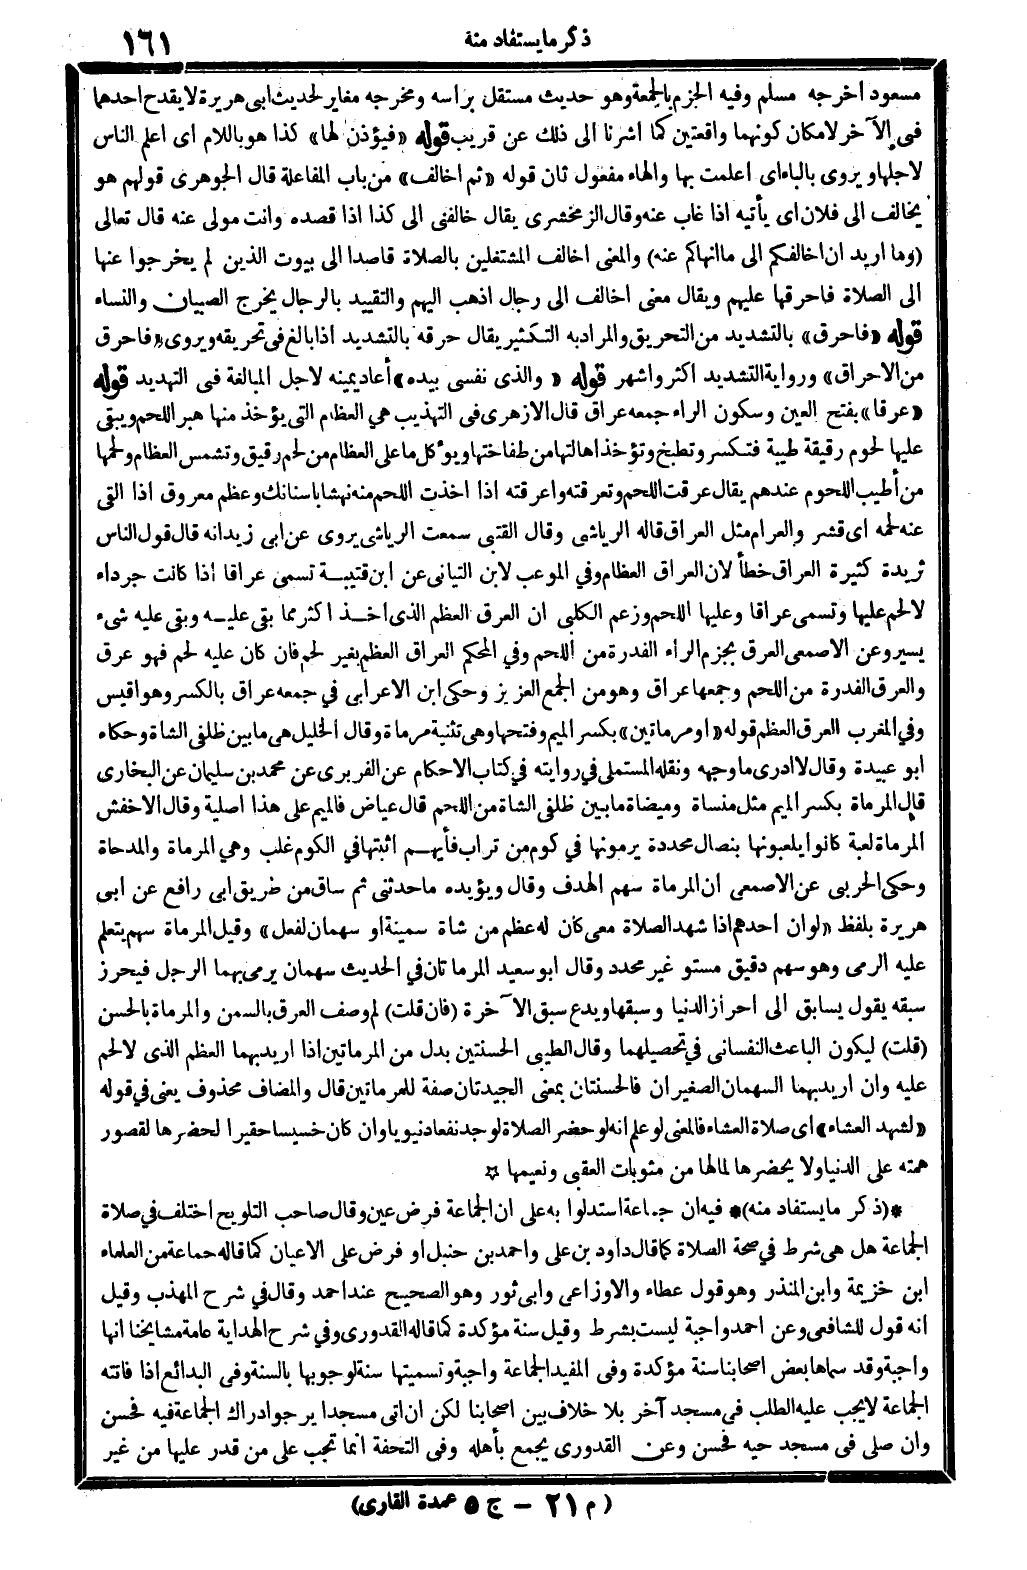 ذكر ما يستفاد منه
١٦١
مسعود اخرجه مسلم وفيه الجزم بالجمعة وهو حديث مستقل برأسه ومخرجه مغاير لحديث ابى هريرة لا يقدح احدهما
فى الآخر لامكان كونهما واقعتين كما اشرنا الى ذلك عن قريب قوله «فيؤذن لها» كذا هو باللام اى اعلم الناس
لاجلها ويروى بالباء اى اعلمت بها والهاء مفعول ثان قوله «ثم اخالف» من باب المفاعلة قال الجوهرى قولهم هو
يخالف الى فلان اى يأتيه اذا غاب عنه وقال الزمخشرى يقال خالفنى الى كذا اذا قصده وانت مولى عنه قال تعالى
(وما اريد ان اخالفكم الى ما انهاكم عنه) والمعنى اخالف المشتغلين بالصلاة قاصدا الى بيوت الذين لم يخرجوا عنها
الى الصلاة فاحرقها عليهم ويقال معنى اخالف الى رجال اذهب اليهم والتقييد بالرجال يخرج الصبيان والنساء
قوله «فاحرق» بالتشديد من التحريق والمراد به التكثير يقال حرقه بالتشديد اذا بالغ فى تحريقه ويروى «فاحرق
من الاحراق» ورواية التشديد اكثر واشهر قوله «والذى نفسى بيده» أعاد يمينه لاجل المبالغة فى التهديد قوله
«عرقا» بفتح العين وسكون الراء جمعه عراق قال الازهرى فى التهذيب هي العظام التى يؤخذ منها هبر اللحم ويبقى
عليها لحوم رقيقة طيبة فتكسر وتطبخ وتؤخذ اهالتها من طفاختها ويؤكل ما على العظام من لحم رقيق وتشمس العظام ولحمها
من أطيب اللحوم عندهم يقال عرقت اللحم وتعرقته واعرقته اذا اخذت اللحم منه نهشا باسنانك وعظم معروق اذا التى
عنه لحمه اى قشر والعرام مثل العراق قاله الرياشى وقال القتبى سمعت الرياشى يروى عن ابى زيد انه قال قول الناس
ثريدة كثيرة العراق خطأ لان العراق العظام وفي الموعب لابن التيانى عن ابن قتيبة تسمى عراقا اذا كانت جرداء
لا لحم عليها وتسمى عراقا وعليها اللحم وزعم الكلبى ان العرق العظم الذى اخذ اكثر مما بقى عليه وبقى عليه شىء
يسير وعن الاصمعى العرق بجزم الراء الفدرة من اللحم وفي المحكم العراق العظم بغير لحم فان كان عليه لحم فهو عرق
والعرق الفدرة من اللحم وجمعها عراق وهو من الجمع العزيز وحكى ابن الاعرابى في جمعه عراق بالكسر وهو اقيس
وفي المغرب العرق العظم قوله «او مرماتين» بكسر الميم وفتحها وهى تثنية مرماة وقال الخليل هى ما بين ظلفى الشاة وحكاه
ابو عبيدة وقال لا ادرى ما وجهه ونقله المستملى في روايته في كتاب الاحكام عن الفربرى عن محمد بن سليمان عن البخارى
قال المرماة بكسر الميم مثل منساة وميضاة ما بين ظلفى الشاة من اللحم قال عياض فالميم على هذا اصلية وقال الاخفش
المرماة لعبة كانوا يلعبونها بنصال محددة يرمونها في كوم من تراب فأيهم اثبتها في الكوم غلب وهي المرماة والمدحاة
وحكى الحربى عن الاصمعى ان المرماة سهم الهدف وقال ويؤيده ما حدثنى ثم ساق من طريق ابى رافع عن ابى
هريرة بلفظ «لو ان احدهم اذا شهد الصلاة معى كان له عظم من شاة سمينة او سهمان لفعل» وقيل المرماة سهم يتعلم
عليه الرمى وهو سهم دقيق مستو غير محدد وقال ابو سعيد المرماتان في الحديث سهمان يرمى بهما الرجل فيحرز
سبقه يقول يسابق الى احراز الدنيا وسبقها ويدع سبق الآخرة (فان قلت) لم وصف العرق بالسمن والمرماة بالحسن
(قلت) ليكون الباعث النفسانى في تحصيلهما وقال الطيبى الحسنتين بدل من المرماتين اذا اريد بهما العظم الذى لا لحم
عليه وان اريد بهما السهمان الصغيران فالحسنتان بمعنى الجيدتان صفة للمرماتين قال والمضاف محذوف يعنى في قوله
«لشهد العشاء» اى صلاة العشاء فالمعنى لو علم انه لو حضر الصلاة لوجد نفعا دنيويا وان كان خسيسا حقيرا لحضرها لقصور
همته على الدنيا ولا يحضرها لما لها من مثوبات العقبى ونعيمها ☆
*(ذكر ما يستفاد منه)* فيه ان جماعة استدلوا به على ان الجماعة فرض عين وقال صاحب التلويح اختلف في صلاة
الجماعة هل هى شرط في صحة الصلاة كما قال داود بن على واحمد بن حنبل او فرض على الاعيان كما قاله جماعة من العلماء
ابن خزيمة وابن المنذر وهو قول عطاء والاوزاعى وابى ثور وهو الصحيح عند احمد وقال في شرح المهذب وقيل
انه قول للشافعى وعن احمد واجبة ليست بشرط وقيل سنة مؤكدة كما قاله القدورى وفي شرح الهداية عامة مشايخنا انها
واجبة وقد سماها بعض اصحابنا سنة مؤكدة وفى المفيد الجماعة واجبة وتسميتها سنة لوجوبها بالسنة وفى البدائع اذا فاتته
الجماعة لا يجب عليه الطلب فى مسجد آخر بلا خلاف بين اصحابنا لكن ان اتى مسجدا يرجو ادراك الجماعة فيه فحسن
وان صلى فى مسجد حيه فحسن وعن القدورى يجمع بأهله وفى التحفة انما تجب على من قدر عليها من غير
(م ٢١ — ج ٥ عمدة القارى)